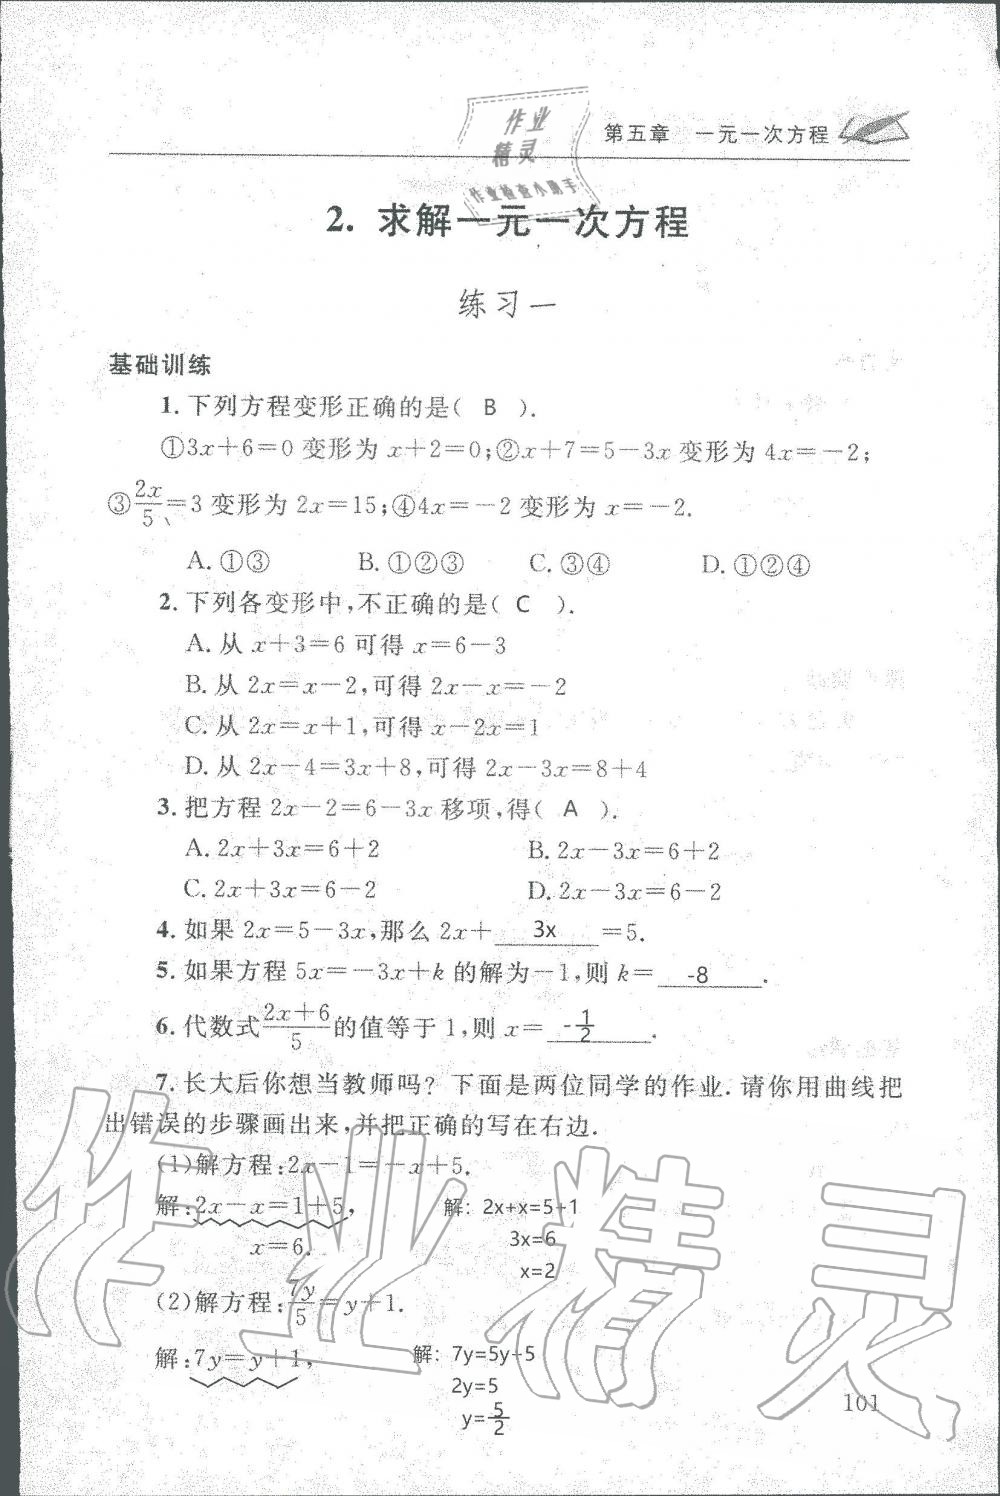 第五章 一元一次方程
作业
精灵
作业检查小助手
2. 求解一元一次方程
练习一
基础训练
1. 下列方程变形正确的是( B ).
①3x+6=0 变形为 x+2=0;②x+7=5-3x 变形为 4x=-2;
③2x/5=3 变形为 2x=15;④4x=-2 变形为 x=-2.
A. ①③ B. ①②③ C. ③④ D. ①②④
2. 下列各变形中,不正确的是( C ).
A. 从 x+3=6 可得 x=6-3
B. 从 2x=x-2,可得 2x-x=-2
C. 从 2x=x+1,可得 x-2x=1
D. 从 2x-4=3x+8,可得 2x-3x=8+4
3. 把方程 2x-2=6-3x 移项,得( A ).
A. 2x+3x=6+2 B. 2x-3x=6+2
C. 2x+3x=6-2 D. 2x-3x=6-2
4. 如果 2x=5-3x,那么 2x+ 3x =5.
5. 如果方程 5x=-3x+k 的解为-1,则 k= -8 .
6. 代数式(2x+6)/5的值等于 1,则 x= -1/2 .
7. 长大后你想当教师吗? 下面是两位同学的作业. 请你用曲线把
出错误的步骤画出来,并把正确的写在右边.
(1)解方程:2x-1=-x+5.
解:2x-x=1+5, 解: 2x+x=5+1
x=6. 3x=6
x=2
(2)解方程:7y/5=y+1.
解:7y=y+1, 解: 7y=5y+5
2y=5
y=5/2
101
作业精灵